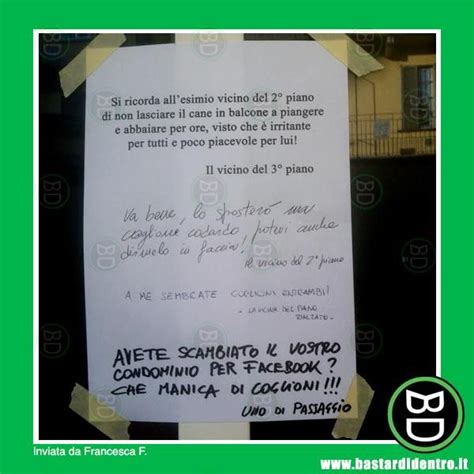 Si ricorda all'esimio vicino del 2° piano
di non lasciare il cane in balcone a piangere
e abbaiare per ore, visto che è irritante
per tutti e poco piacevole per lui!
Il vicino del 3° piano
Va bene, lo sposterò ma
coglione codardo, potevi anche
dirmelo in faccia!
Il vicino del 2° piano
A ME SEMBRATE COGLIONI ENTRAMBI!
- LA VICINA DEL PIANO
RIALZATO -
AVETE SCAMBIATO IL VOSTRO
CONDOMINIO PER FACEBOOK?
CHE MANICA DI COGLIONI!!!
UNO DI PASSAGGIO
Inviata da Francesca F.
BD
www.bastardidentro.it